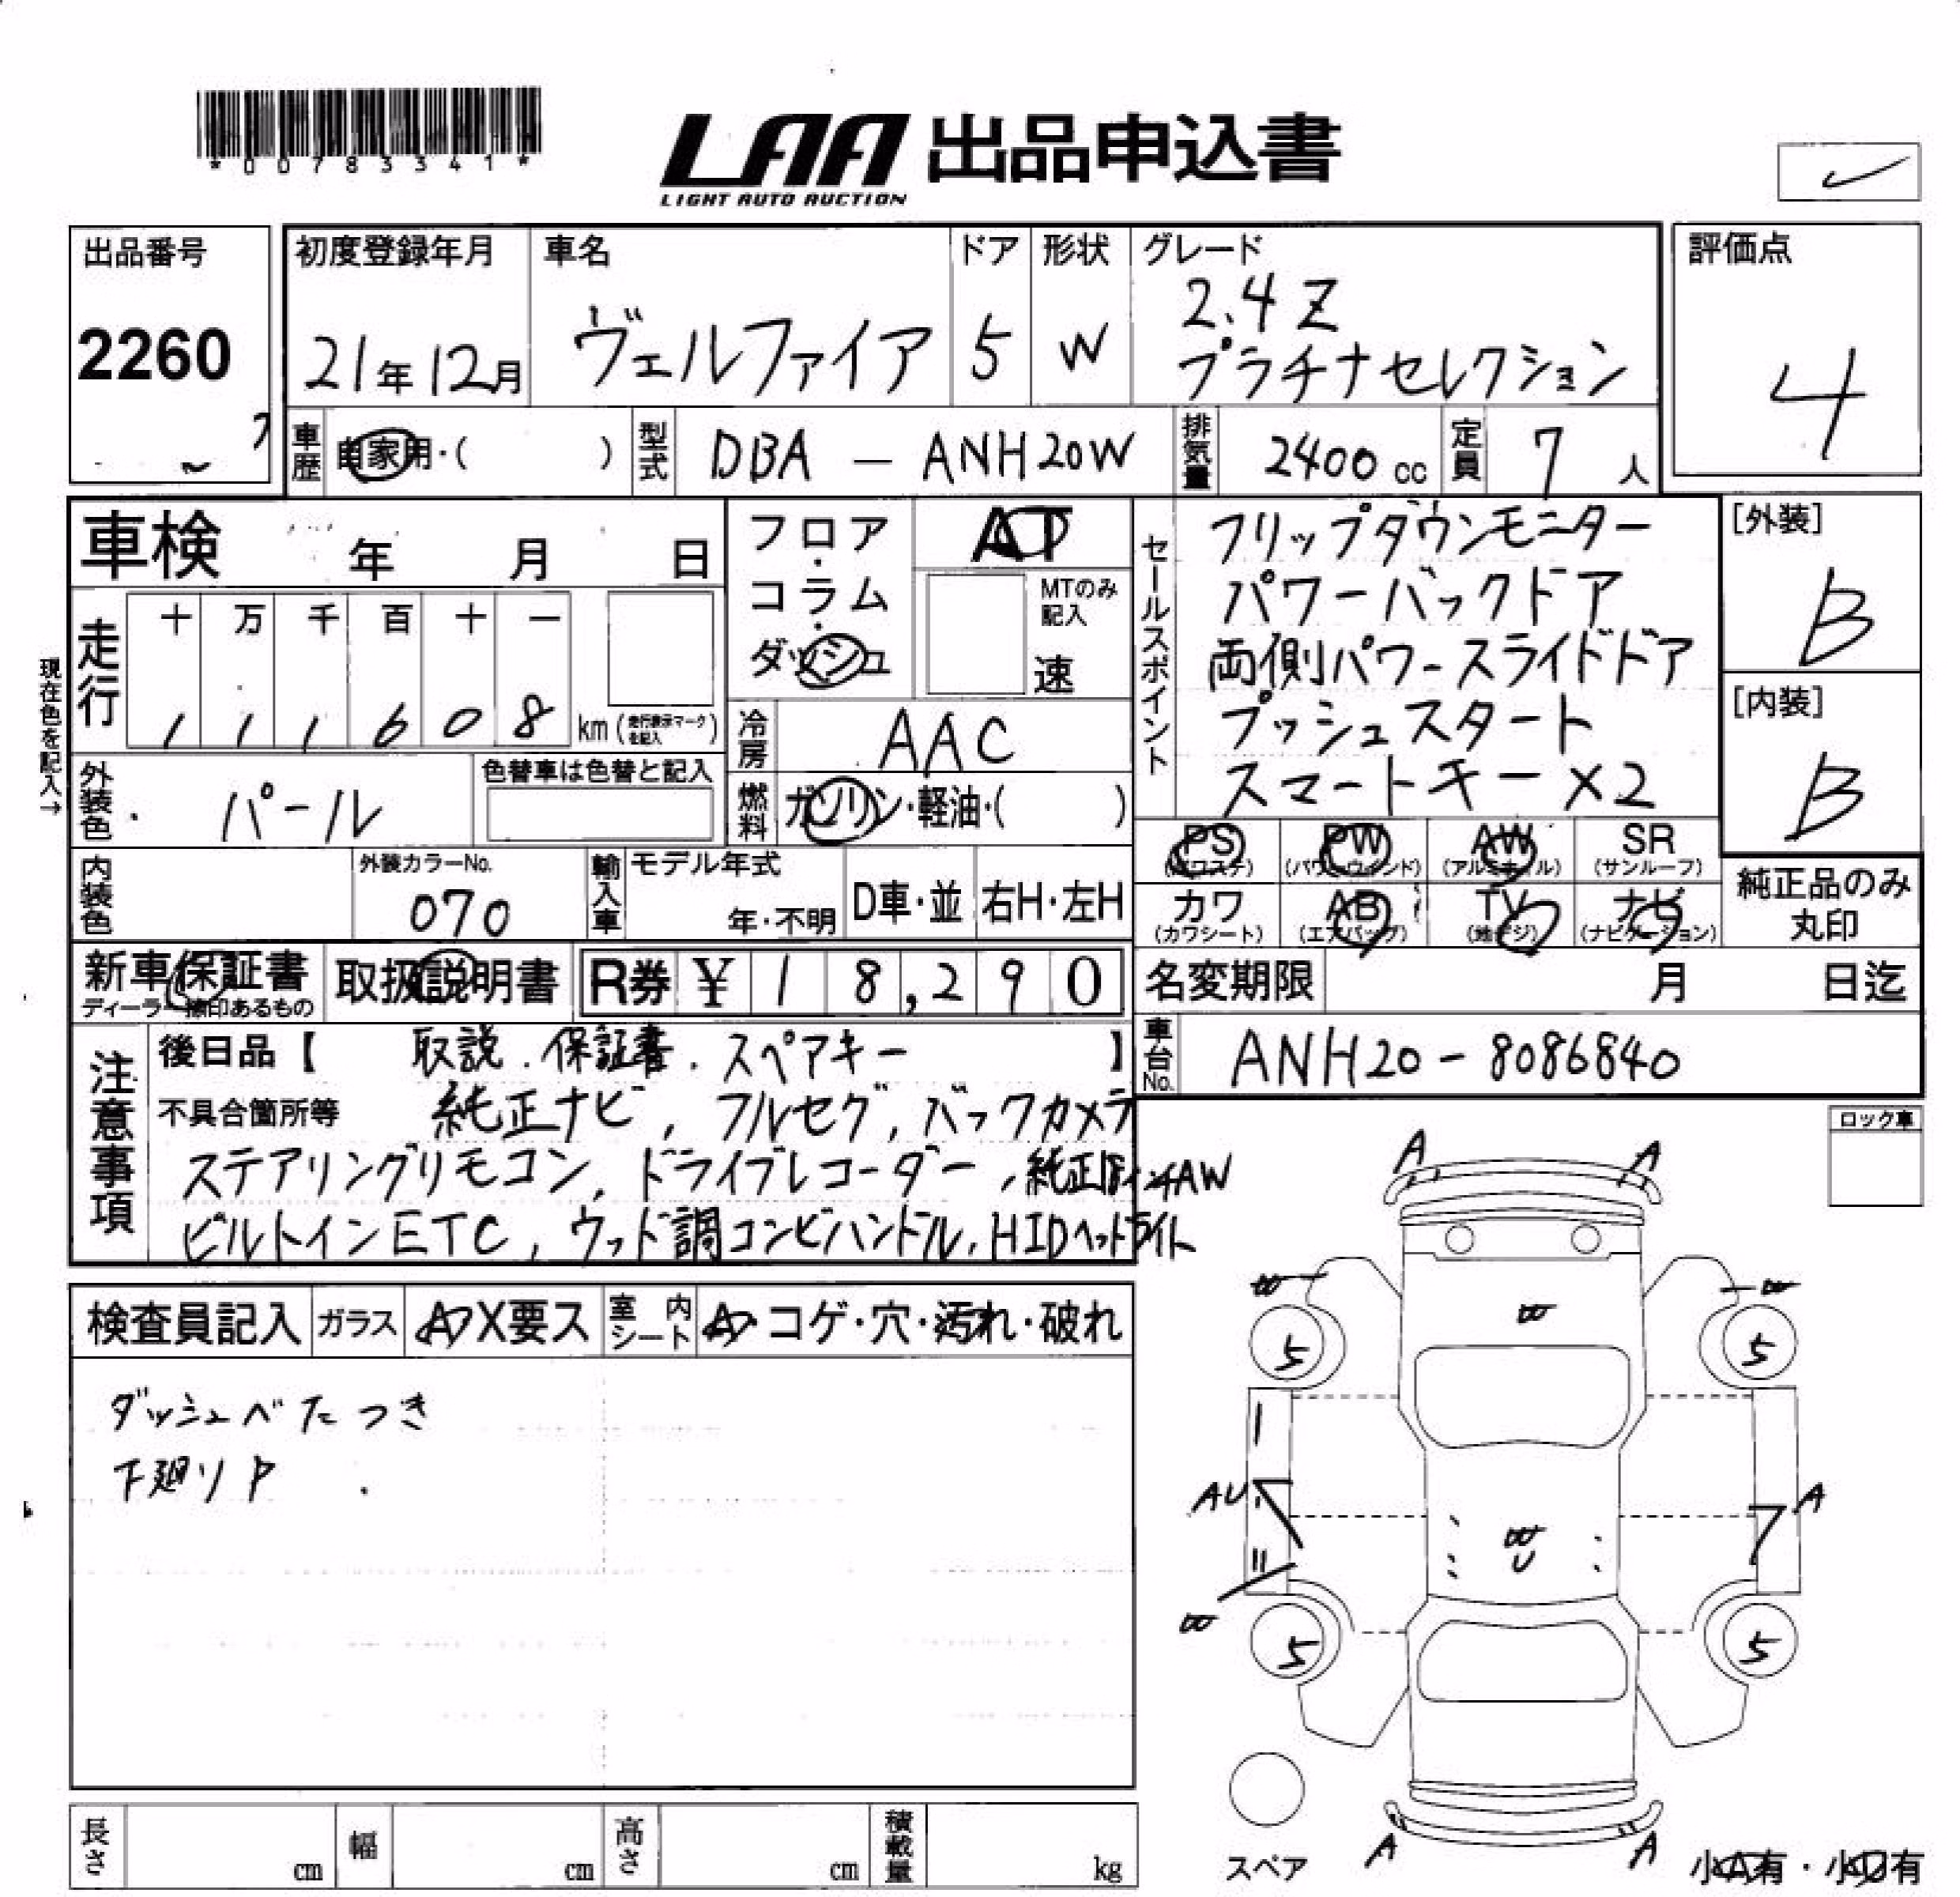 *00783341*
LAA 出品申込書
LIGHT AUTO AUCTION
出品番号
2260
初度登録年月
21年12月
車名
ヴェルファイア
ドア
5
形状
W
グレード
2.4 Z
プラチナセレクション
評価点
4
車歴
自家用・( )
型式
DBA - ANH20W
排気量
2400 cc
定員
7人
車検 年 月 日
フロア・コラム・ダッシュ
AT
MTのみ記入
速
セールスポイント
フリップダウンモニター
パワーバックドア
両側パワースライドドア
プッシュスタート
スマートキー×2
[外装]
B
[内装]
B
現在色を記入→
走行
十 万 千 百 十 一
1 1 1 6 0 8 km (走行表示マークを記入)
冷房
AAC
外装色
パール
色替車は色替と記入
燃料
ガソリン・軽油・( )
PS (パワステ)
PW (パワーウィンド)
AW (アルミホイル)
SR (サンルーフ)
カワ (カワシート)
AB (エアバッグ)
TV (地デジ)
ナビ (ナビゲーション)
純正品のみ
丸印
内装色
外装カラーNo.
070
輸入車
モデル年式
年・不明
D車・並
右H・左H
新車保証書
ディーラー捺印あるもの
取扱説明書
R券 ¥ 18,290
名変期限 月 日迄
車台No.
ANH20-8086840
注意事項
後日品【 取説.保証書.スペアキー 】
不具合箇所等 純正ナビ, フルセグ, バックカメラ
ステアリングリモコン, ドライブレコーダー, 純正18インチAW
ビルトインETC, ウッド調コンビハンドル, HIDヘッドライト
ロック車
検査員記入
ガラス
A・X要ス
室内シート
A・コゲ・穴・汚れ・破れ
ダッシュベたつき
下廻りP
A A
5 5
AU A
U
5 5
A A
スペア
小A有・小U有
長さ cm
幅 cm
高さ cm
積載量 kg